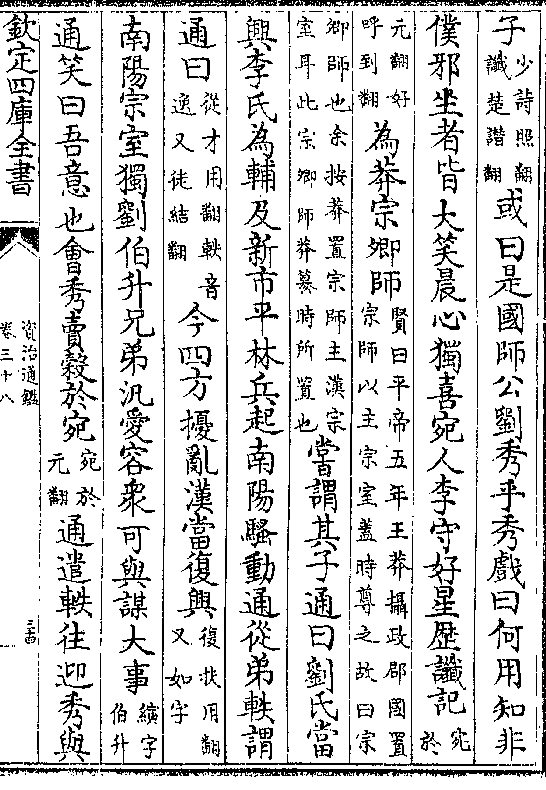 子少詩照翻讖楚譖翻或曰是國師公劉秀乎秀戲曰何用知非
僕邪坐者皆大笑晨心獨喜宛人李守好星歷讖記宛於
元翻好呼到翻為莽宗卿師賢曰平帝五年王莽攝政郡國置宗師以主宗室蓋時尊之故曰宗
卿師也余按莽置宗師主漢宗室耳此宗卿師莽篡時所置也嘗謂其子通曰劉氏當
興李氏為輔及新市平林兵起南陽騷動通從弟軼謂
通曰從才用翻軼音逸又徒結翻今四方擾亂漢當復興復扶用翻又如字
南陽宗室獨劉伯升兄弟汎愛容衆可與謀大事縯字伯升
通笑曰吾意也會秀賣穀於宛宛於元翻通遣軼往迎秀與
欽定四庫全書
資治通鑑
卷三十八
三十四